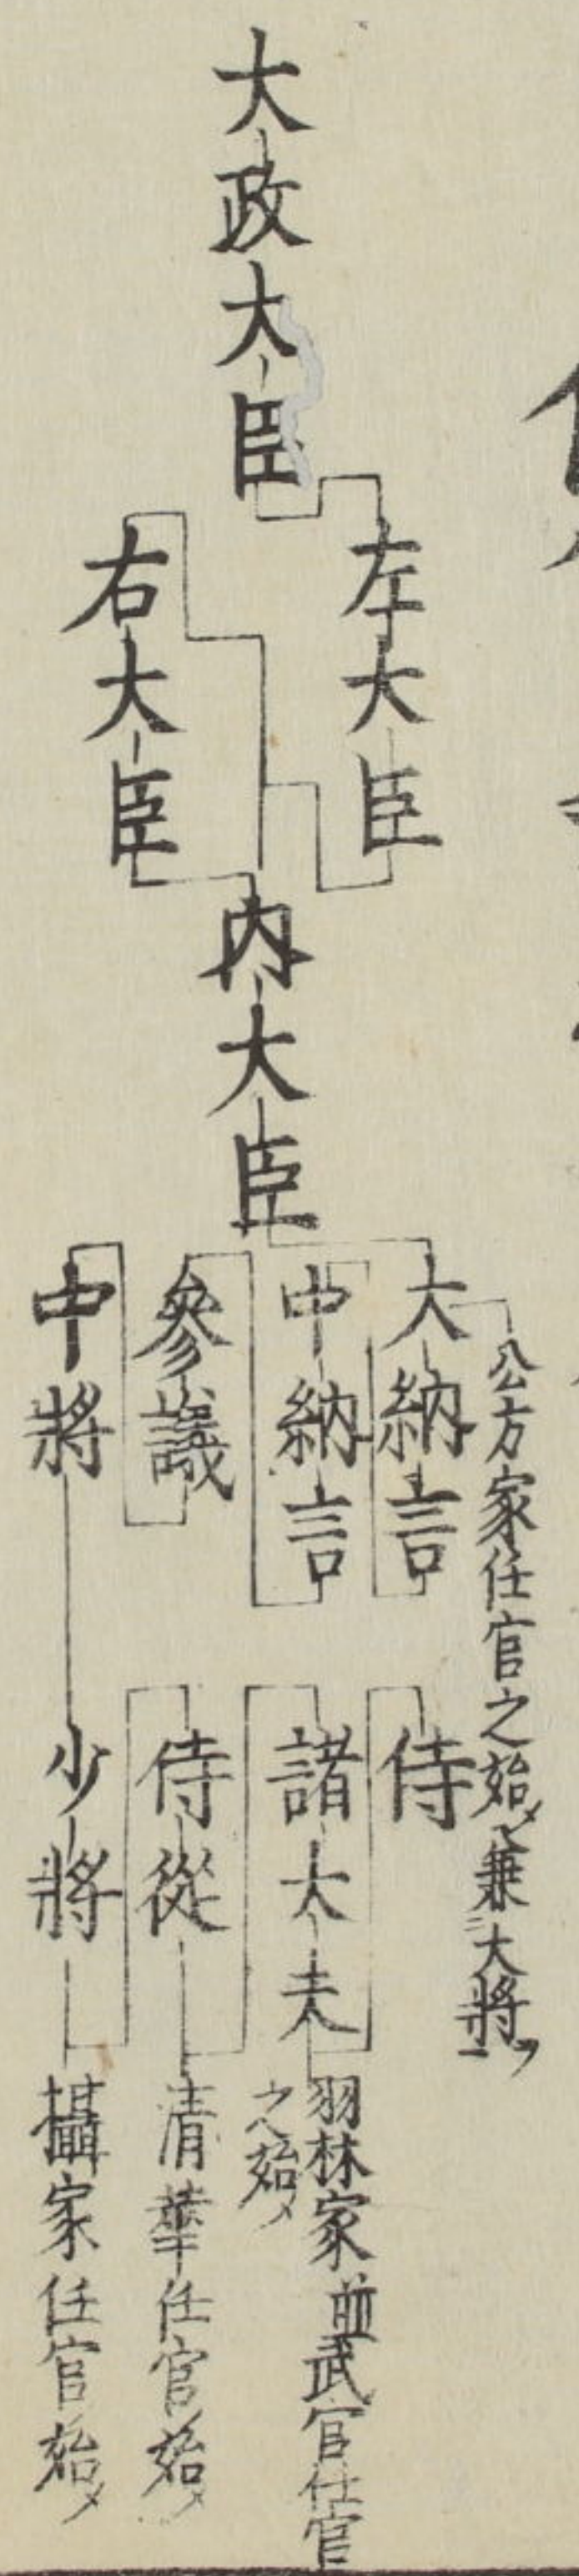 大政大臣
左大臣
右大臣
内大臣
公方家任官之始メ兼ニ大将一ヲ
大納言
中納言
參議
中將
侍
諸大夫
侍從
少將
羽林家並武官任官
之始メ
清華任官始メ
攝家任官始メ